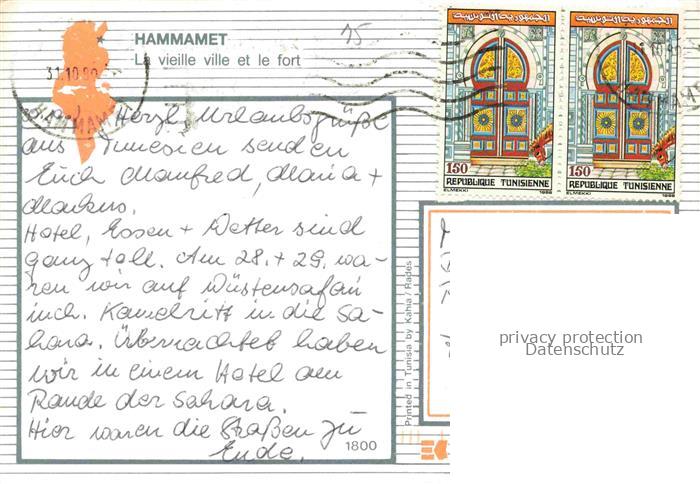 HAMMAMET
La vieille ville et le fort
15
31.10.90
Herzl. Urlaubsgrüße
aus Tunesien senden
Euch Manfred, Maria +
Markus.
Hotel, Essen + Wetter sind
ganz toll. Am 28. + 29. wa-
ren wir auf Wüstensafari
incl. Kamelritt in die Sa-
hara. Übernachtet haben
wir in einem Hotel am
Rande der Sahara.
Hier waren die Straßen zu
Ende.
1800
Printed in Tunisia by Kahia / Rades
الجمهورية التونسية
150
REPUBLIQUE TUNISIENNE
ELMEKKI 1988
الجمهورية التونسية
150
REPUBLIQUE TUNISIENNE
ELMEKKI 1988
privacy protection
Datenschutz